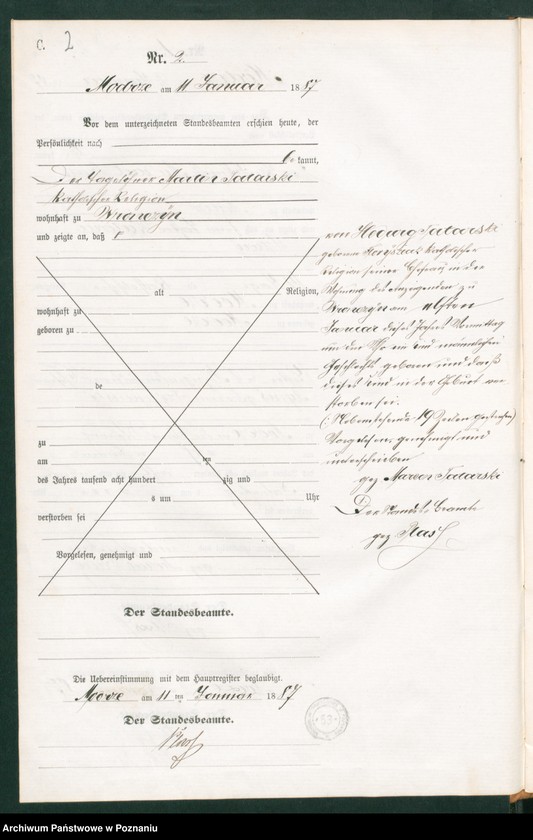 C. 2
Nr. 2.
Modrze am 11 Januar 1887
Vor dem unterzeichneten Standesbeamten erschien heute, der
Persönlichkeit nach
bekannt,
Der Tagelöhner Marcin
katholischer Religion
wohnhaft zu Wronczyn
und zeigte an, daß
alt Religion,
wohnhaft zu
geboren zu
de
zu
am ten
des Jahres tausend acht hundert zig und
s um Uhr
verstorben sei
Vorgelesen, genehmigt und
von Hedwig
geborene katholischer
Religion seiner Ehefrau in der
Wohnung des Anzeigenden zu
Wronczyn am elften
Januar dieses Jahres Vormittag
um Uhr ein Kind männlichen
Geschlechts geboren und daß
dieses Kind in der Geburt ver-
storben sei.
(: Nebenstehende 19 Zeilen gestrichen)
Vorgelesen, genehmigt und
unterschrieben
gez Marcin
Der Standesbeamte
gez
Der Standesbeamte.
Die Uebereinstimmung mit dem Hauptregister beglaubigt.
Modrze am 11 ten Januar 1887
Der Standesbeamte.
53
Archiwum Państwowe w Poznaniu